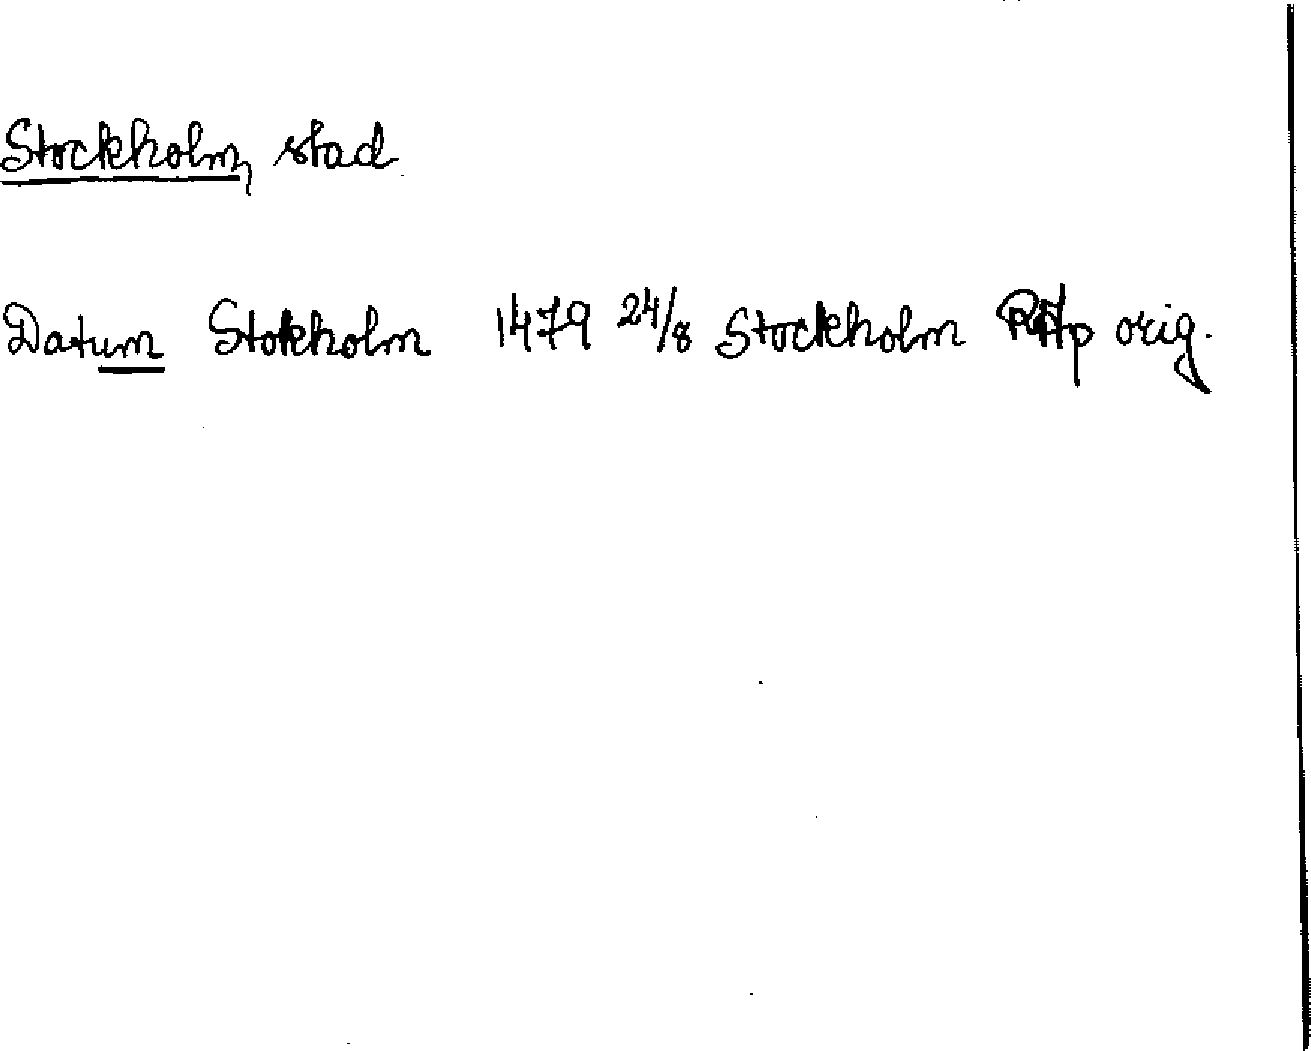 Stockholm, stad
Datum Stokholm 1479 24/8 Stockholm RAp orig.